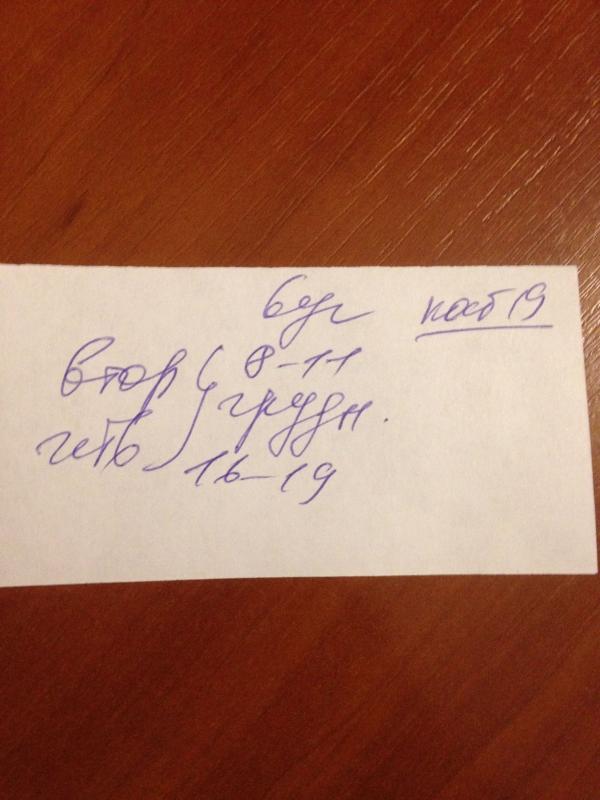 каб 19
втор 8-11
грудн.
четв 16-19